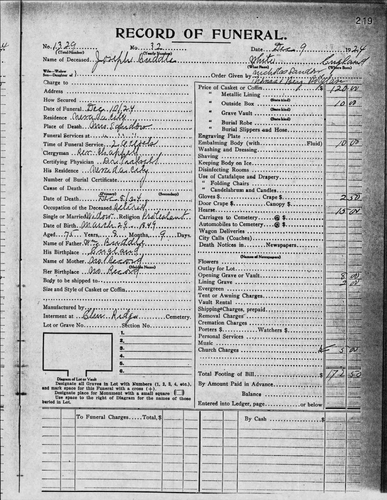 219
RECORD OF FUNERAL.
No. 1329 No. 12 Date Dec 9 1924
(Total Number) (Yearly Number)
Name of Deceased Joseph Buddle White England
(What Race) (Where Born)
Wife—Widow
Son—Daughter of Order Given by
Charge to
Address
How Secured
Date of Funeral Dec 10/24
Residence
Place of Death Mrs
Funeral Services at
Time of Funeral Service 2
Clergyman Rev.
Certifying Physician Dr
His Residence
Number of Burial Certificate
Cause of Death
Date of Death Dec 8/24
Occupation of the Deceased Retired
Single or Married Widow Religion Protestant
Date of Birth March 29 1849
Aged 75 Years 8 Months 9 Days
Name of Father Wm Buddle
His Birthplace England
Name of Mother No Record
(Maiden Name)
Her Birthplace No Record
Body to be shipped to
Size and Style of Casket or Coffin
Manufactured by
Interment at Glen Ridge Cemetery.
Lot or Grave No. Section No.
1
2
3
4
5
6
Diagram of Lot or Vault
Designate all Graves in Lot with Numbers (1, 2, 3, 4, etc.), and mark space for this Funeral with a cross (+).
Designate place for Monument with a small square
Use space to the right of Diagram for the names of those buried in Lot.
Price of Casket or Coffin 120 00
" Metallic Lining
(State kind)
" Outside Box 10 00
(State kind)
" Grave Vault
(State kind)
" Burial Robe
(State kind)
" Burial Slippers and Hose
Engraving Plate
Embalming Body 10 00
Washing and Dressing
Shaving
Keeping Body on Ice
Disinfecting Rooms
Use of Catafalque and Drapery
" Folding Chairs
" Candelabrum and Candles
Gloves $ Crape $ 2 50
Door Crape $ Canopy $
Hearse 15 00
Carriages to Cemetery @ $
Automobiles to Cemetery @ $
Wagon Deliveries
City Calls (Coaches)
Death Notices in Newspapers.
(Names of Newspapers)
Flowers
Outlay for Lot
Opening Grave or Vault 8 00
Lining Grave 2 00
Evergreen
Tent or Awning Charges
Vault Rental
Shipping Charges, prepaid
Removal Charges
Cremation Charges
Porters $ Watchers $
Personal Services
Music
Church Charges 5 00
Total Footing of Bill $ 172 50
By Amount Paid in Advance
Balance
Entered into Ledger, page or below.
To Funeral Charges Total, $ By Cash $